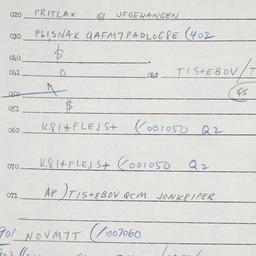 020 PRITLAX QI UFGEHANGEN
030 PLISNAK QAFM7PADLOG8E (402
040 $ .
041 0 042 TISTEBOV/T
050 QS
052 $
060 K8I+FLEJS+ (001050 Q2
070 K8I+FLEJS+ (001050 Q2
072 AP)TISTEBOV QCM JONK8IPER
901 NOVM7T (007060